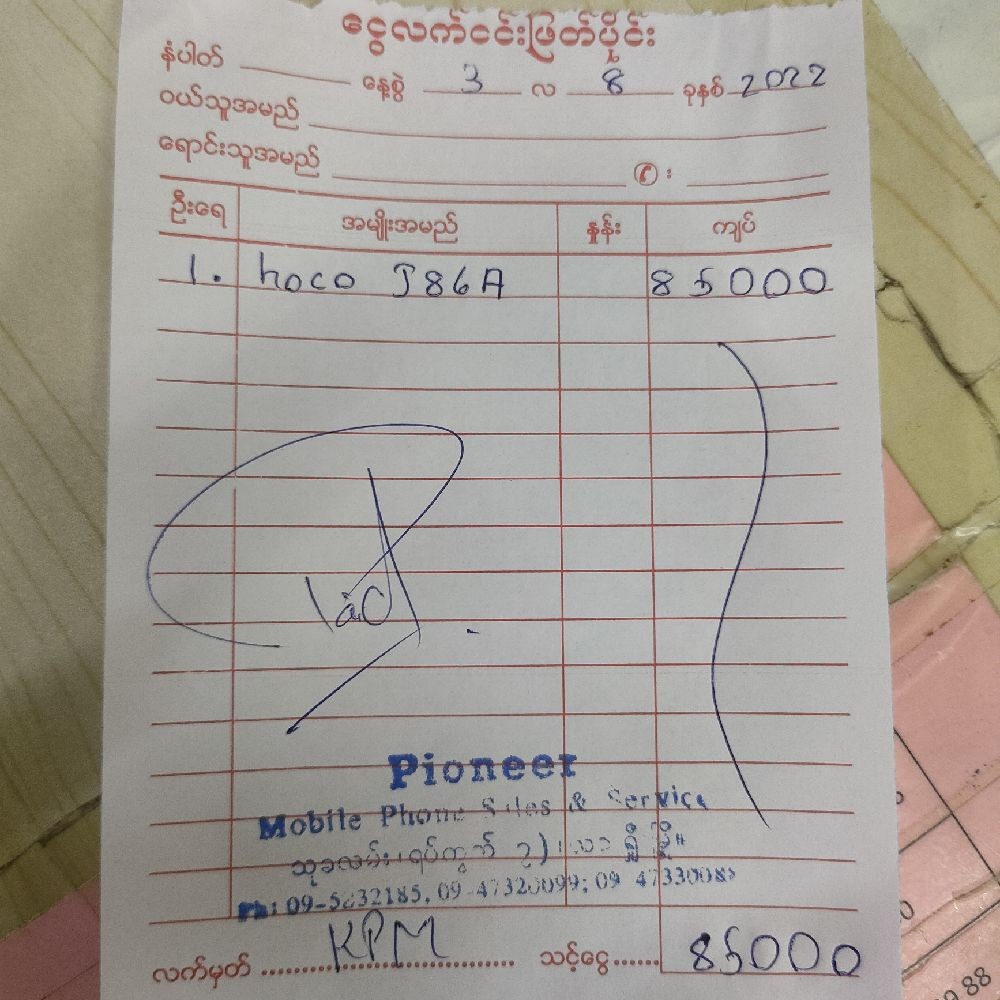 ငွေလက်ဝင်းဖြတ်ပိုင်း
နံပါတ် နေ့စွဲ 3 လ 8 ခုနှစ် 2022
ဝယ်သူအမည်
ရောင်းသူအမည်
ဦးရေ အမျိုးအမည် နှုန်း ကျပ်
1. hoco J86A 85000
Pioneer
Mobile Phone Sales & Service
သုခလမ်း၊ ရပ်ကွက်
Ph: 09-5232185, 09-47320099; 09
လက်မှတ် KPM သင့်ငွေ 85000
88